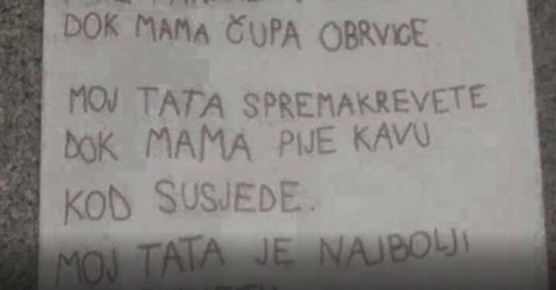 DOK MAMA ČUPA OBRVICE.
MOJ TATA SPREMAKREVETE
DOK MAMA PIJE KAVU
KOD SUSJEDE.
MOJ TATA JE NAJBOLJI